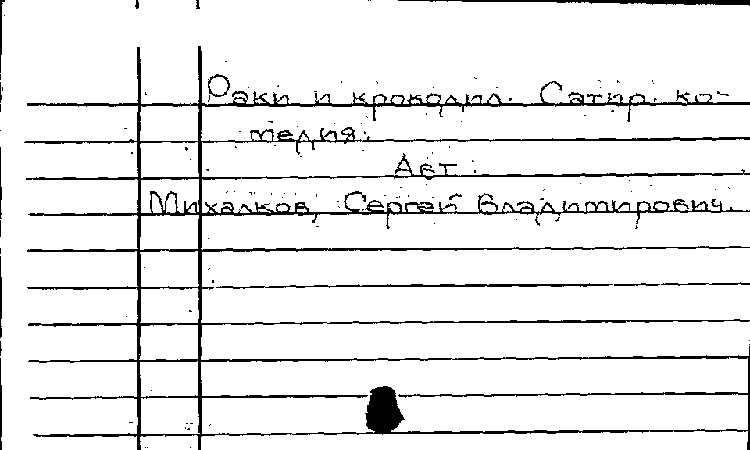 Раки и крокодил. Сатир. ко-
медия.
Авт.:
Михалков, Сергей Владимирович.